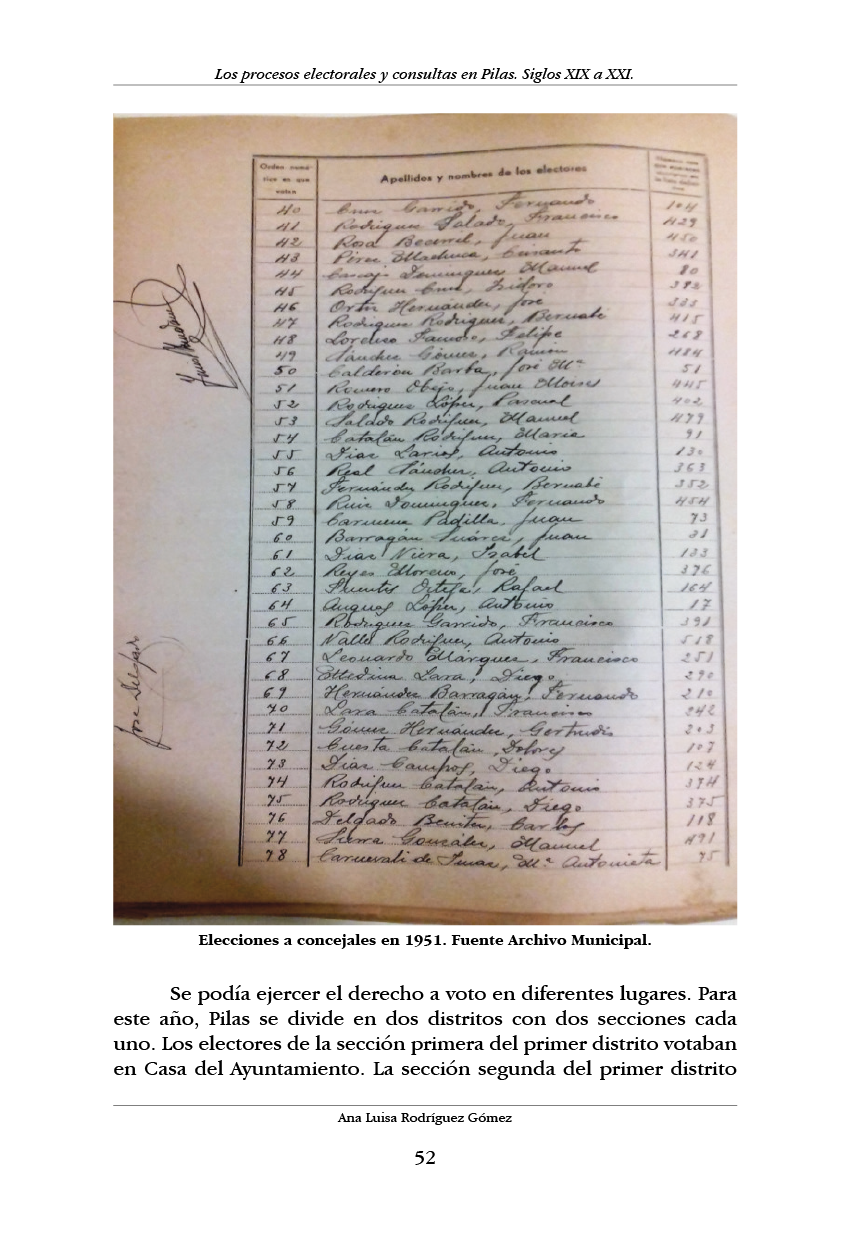 Los procesos electorales y consultas en Pilas. Siglos XIX a XXI.
Orden numé-
rico en que
voten
Apellidos y nombres de los electores
40 Garrido, Fernando 104
41 Rodriguez Salado, Francisco 429
42 Rosa Becerril, Juan 450
43 Pérez 341
44 Dominguez Manuel 80
45 Rodríguez Cruz, Isidoro 382
46 Ortiz Hernández, José 333
47 Rodriguez Rodriguez, Bernabé 415
48 Felipe 268
49 Sánchez Gómez, Ramón 484
50 Calderón Barba, José Mª 51
51 Romero Obejo, Juan Moises 445
52 Rodriguez López, Pascual 402
53 Salado Rodríguez, Manuel 479
54 Catalán Rodríguez, Maria 91
55 Diaz Larios, Antonio 130
56 Real Sánchez, Antonio 363
57 Fernández Rodríguez, Bernabé 352
58 Ruiz Dominguez, Fernando 454
59 Carmona Padilla, Juan 73
60 Barragán Suárez, Juan 31
61 Diaz Niera, Isabel 133
62 Reyes Moreno, José 376
63 Fuentes Ortega, Rafael 164
64 López, Antonio 17
65 Rodriguez Garrido, Francisco 391
66 Valles Rodríguez, Antonio 518
67 Leonardo Márquez, Francisco 251
68 Medina Lara, Diego 290
69 Hernández Barragán, Fernando 210
70 Lara Catalán, Francisco 242
71 Gómez Hernández, Gertrudis 203
72 Cuesta Catalán, Dolores 107
73 Diaz Campos, Diego 124
74 Rodríguez Catalán, Antonio 374
75 Rodriguez Catalán, Diego 375
76 Delgado Benitez, Carlos 118
77 Sierra González, Manuel 491
78 Carnevali de Mª Antonieta 75
José Delgado
Elecciones a concejales en 1951. Fuente Archivo Municipal.
Se podía ejercer el derecho a voto en diferentes lugares. Para
este año, Pilas se divide en dos distritos con dos secciones cada
uno. Los electores de la sección primera del primer distrito votaban
en Casa del Ayuntamiento. La sección segunda del primer distrito
Ana Luisa Rodríguez Gómez
52